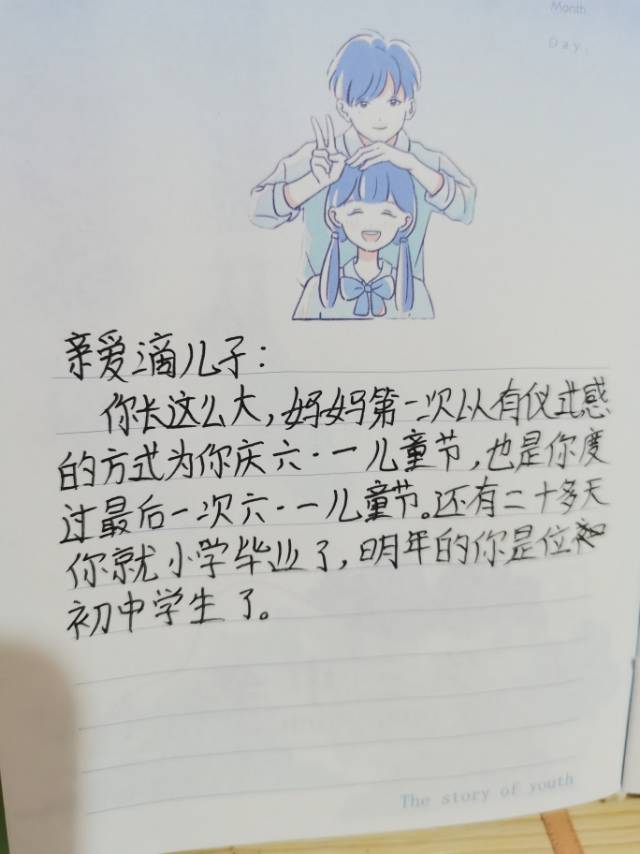 Month
Day.
亲爱滴儿子：
你长这么大，妈妈第一次以有仪式感
的方式为你庆六·一儿童节，也是你度
过最后一次六·一儿童节。还有二十多天
你就小学毕业了，明年的你是位
初中学生了。
The story of youth